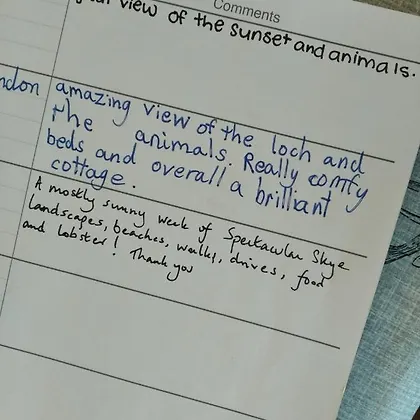 Comments
view of the sunset and animals.
ndon amazing view of the loch and
the animals. Really comfy
beds and overall a brilliant
cottage.
A mostly sunny week of Spectacular Skye
landscapes, beaches, walks, drives, food
and lobster! Thank you